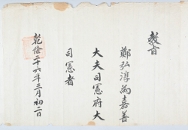 教旨
鄭弘淳爲嘉善
大夫司憲府大
司憲者
乾隆二十七年三月初二日